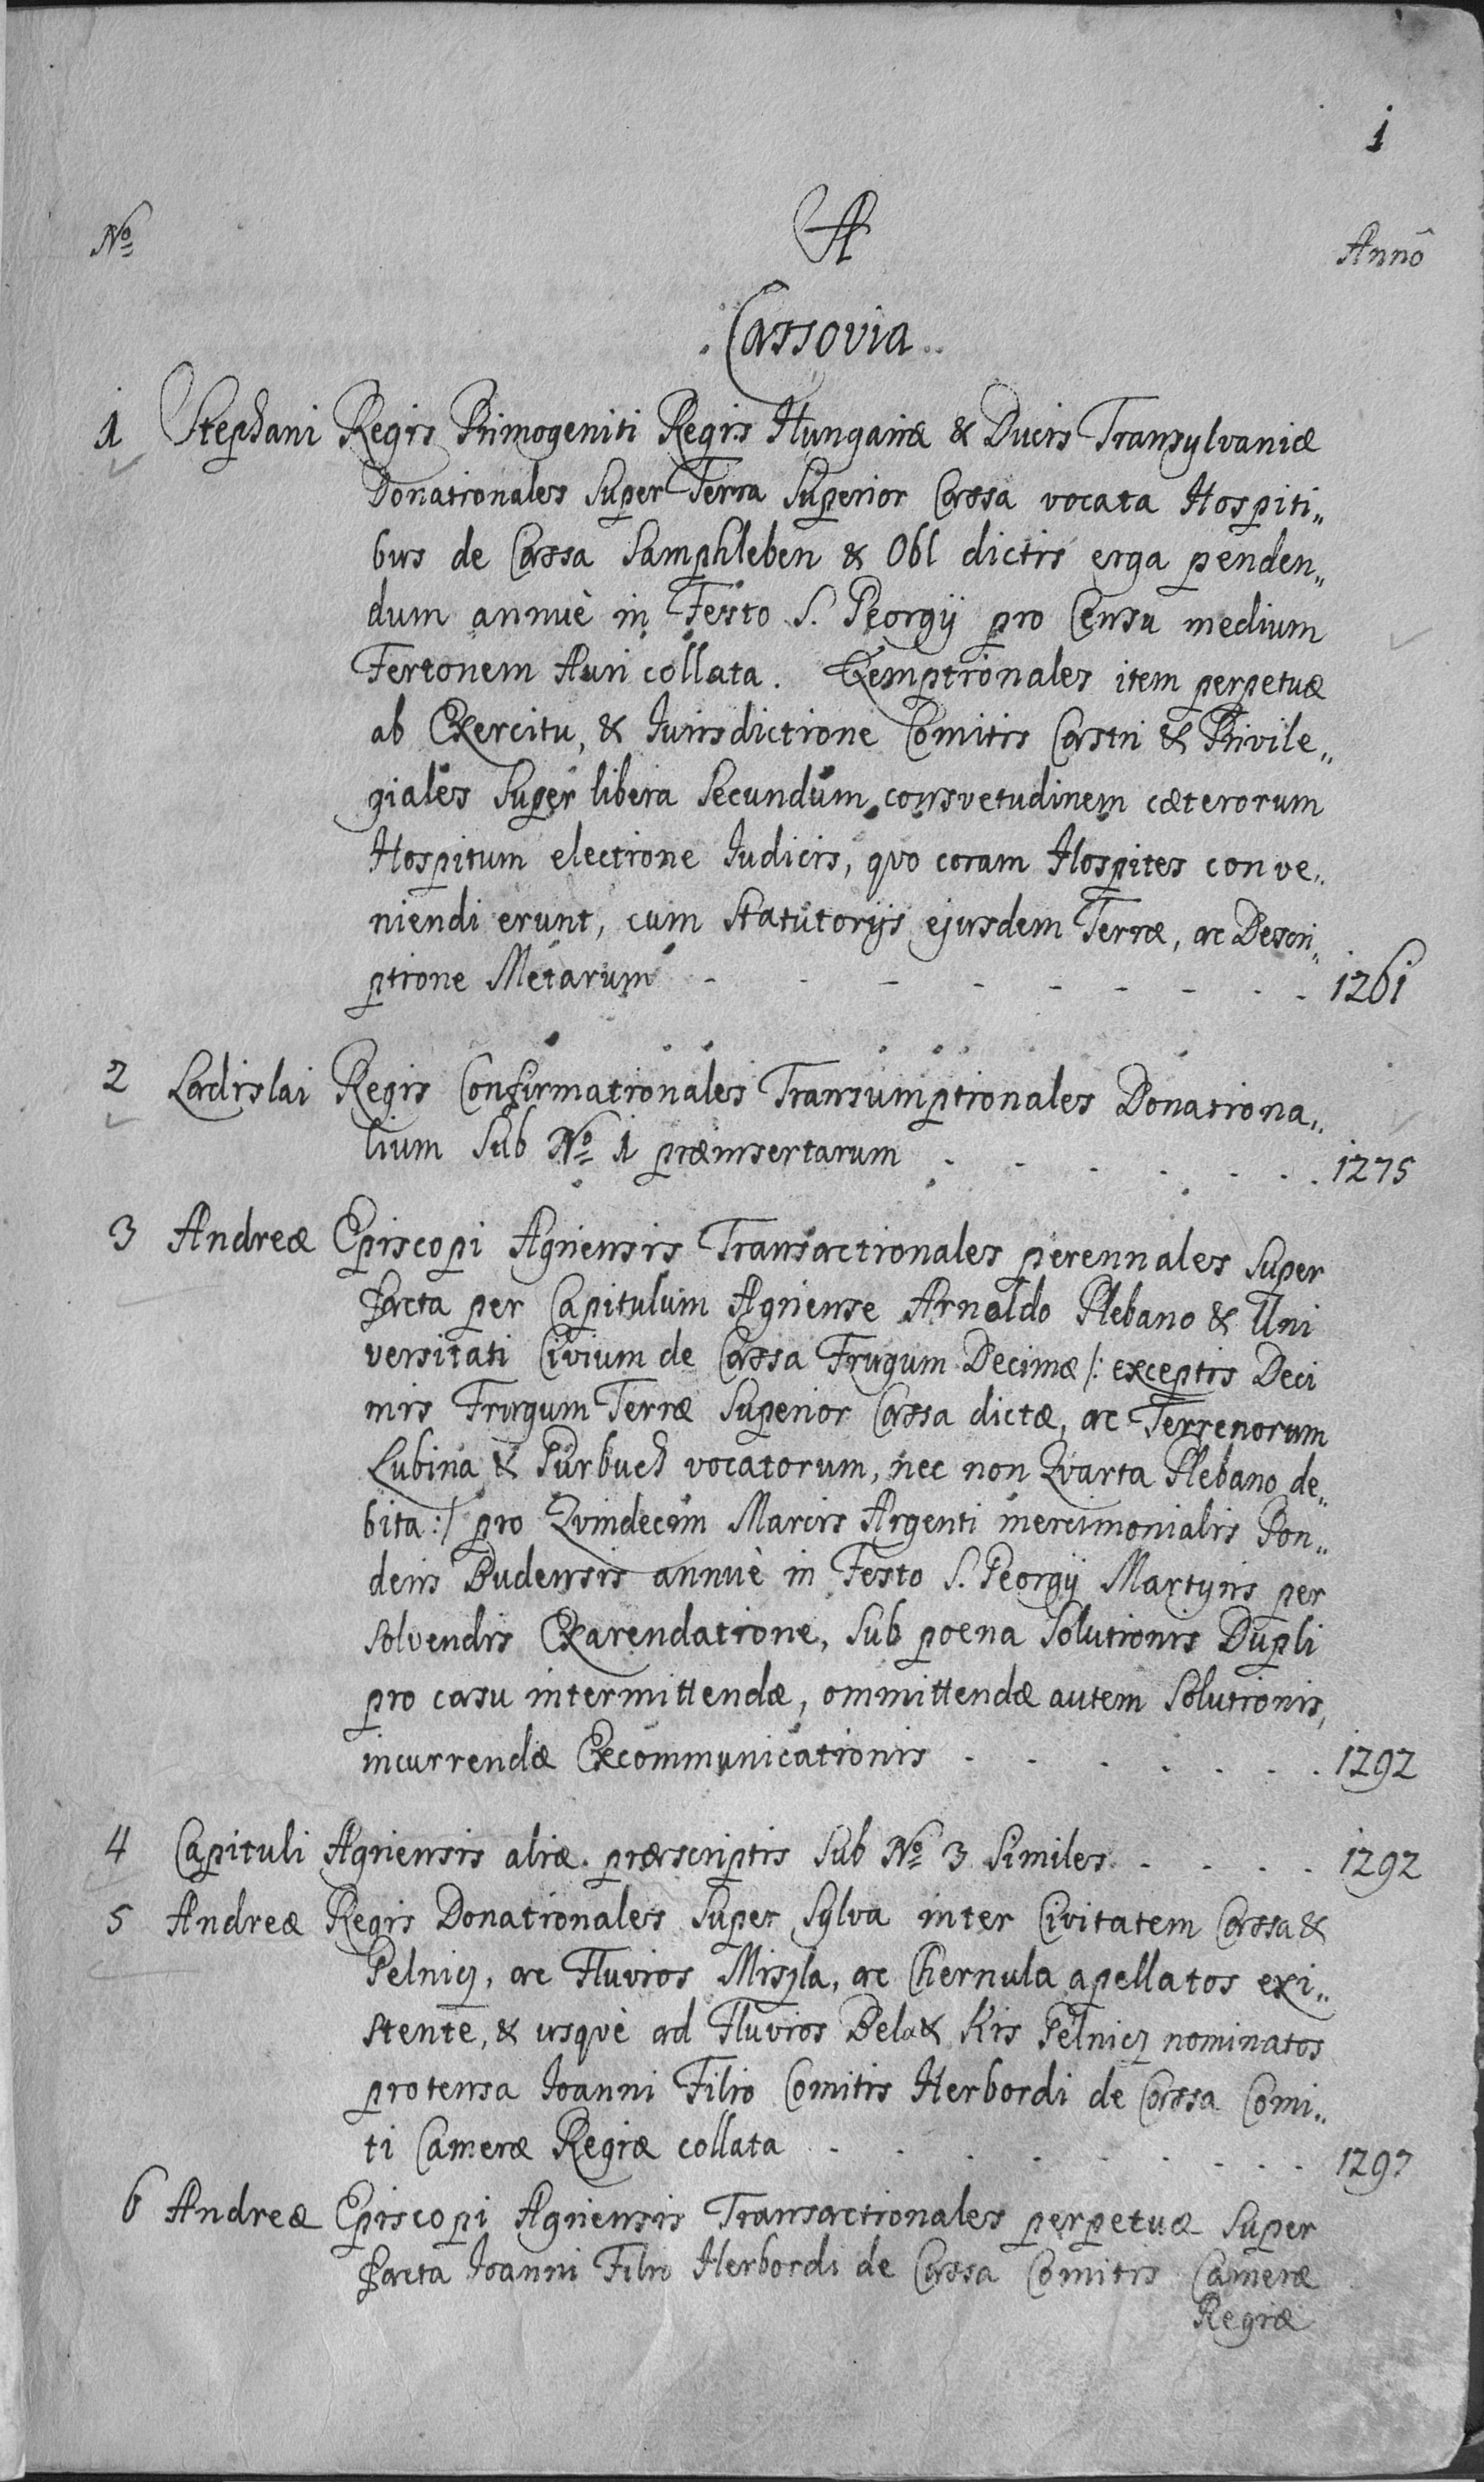 1
A
Nº Annô
Cassovia
1 Stephani Regis Primogeniti Regis Hungariæ & Ducis Transylvaniæ
Donationales Super Terra Superior Cassa vocata Hospiti„
bus de Cassa Samphleben & Obl dictis erga penden„
dum annuè in Festo S. Georgÿ pro Censu medium
Fertonem Auri collata. Exemptionales item perpetuæ
ab Exercitu, & Iurisdictione Comitis Castri & Privile„
giales Super libera Secundum consvetudinem cæterorum
Hospitum electione Iudicis, quo coram Hospites conve„
niendi erunt, cum Statutorÿs ejusdem Terræ, ac Descri„
ptione Metarum - - - - - - - - - 1261
2 Ladislai Regis Confirmationales Transumptionales Donationa„
lium Sub Nº 1 præinsertarum . . . . . . . 1275
3 Andreæ Episcopi Agriensis Transactionales perennales Super
facta per Capitulum Agriense Arnoldo Plebano & Uni
versitati Civium de Cassa Frugum Decimæ /: exceptis Deci
mis Frugum Terræ Superior Cassa dictæ, ac Terrenorum
Lubina & Purbuch vocatorum, nec non Qvarta Plebano de„
bita :/ pro Qvindecim Marcis Argenti mercimonialis Pon„
deris Budensis annuè in Festo S. Georgÿ Martyris per
solvendis Exarendatione, Sub poena Solutionis Dupli
pro casu intermittendæ, ommittendæ autem Solutionis,
incurrendæ Excommunicationis . . . . . . . 1292
4 Capituli Agriensis aliæ præscriptis Sub Nº 3 Similes . . . . 1292
5 Andreæ Regis Donationales Super Sylva inter Civitatem Cassa &
Gelnicz, ac Fluvios Miszla, ac Chernula apellatos exi„
stente, & usqvè ad Fluvios Bela & Kis Gelnicz nominatos
protensa Ioanni Filio Comitis Herbordi de Cassa Comi„
ti Cameræ Regiæ collata . . . . . . . . 1297
6 Andreæ Episcopi Agriensis Transactionales perpetuæ Super
facta Ioanni Filio Herbordi de Cassa Comitis Cameræ
Regiæ